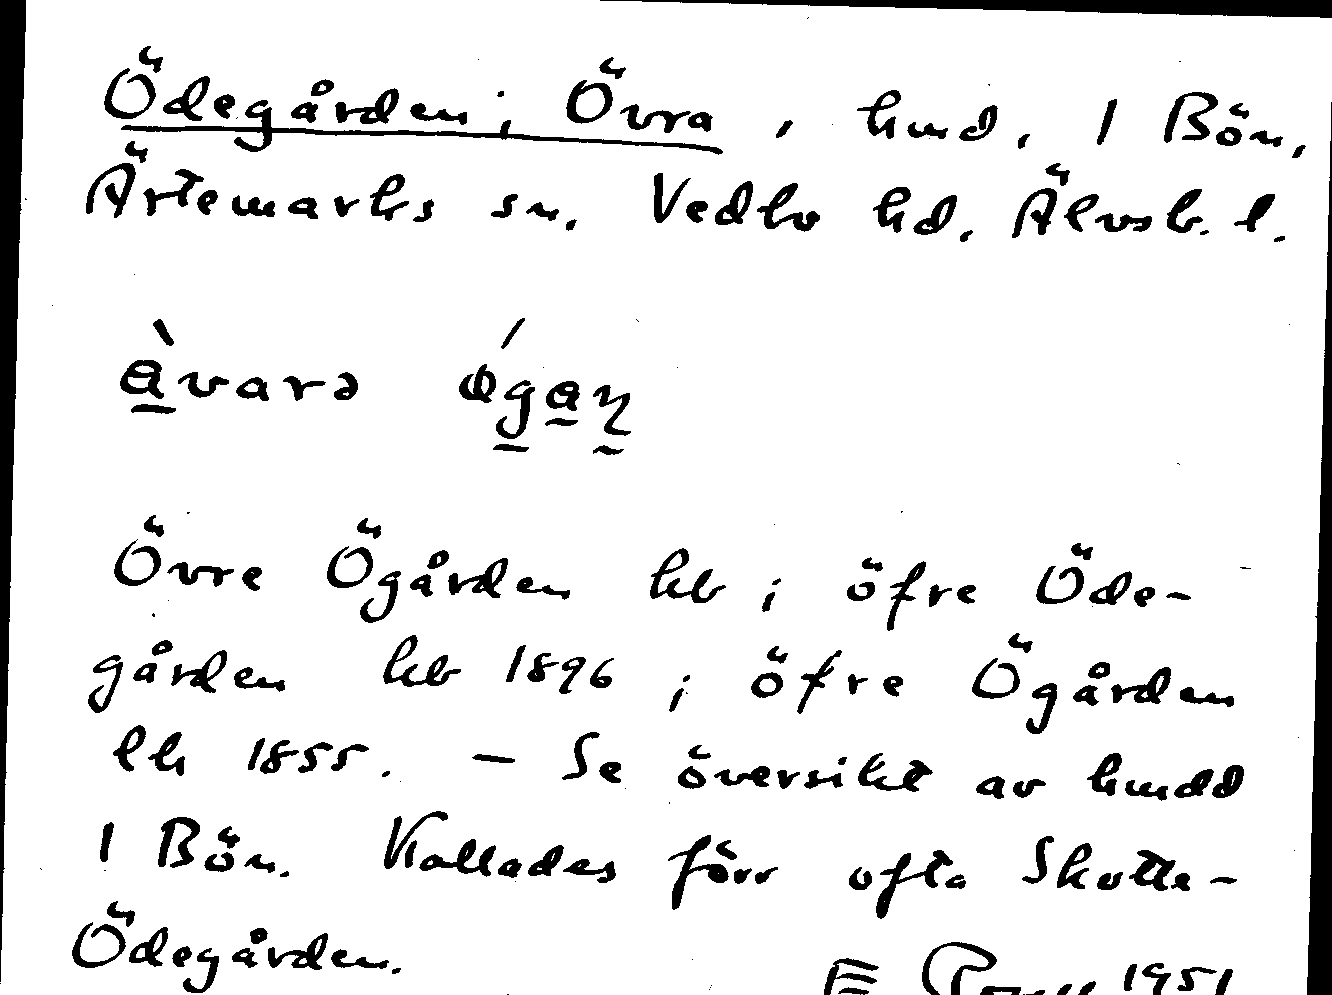 Ödegården, Övra, hmd. 1 Bön,
Ärtemarks sn. Vedbo hd. Älvsb. l.
à̱varə ǿg̱a̰n̰
Övre Ögården kb; öfre Öde-
gården kb 1896; öfre Ögården
lh 1855. — Se översikt av hmdd
1 Bön. Kallades förr ofta Skotte-
Ödegården.
1951